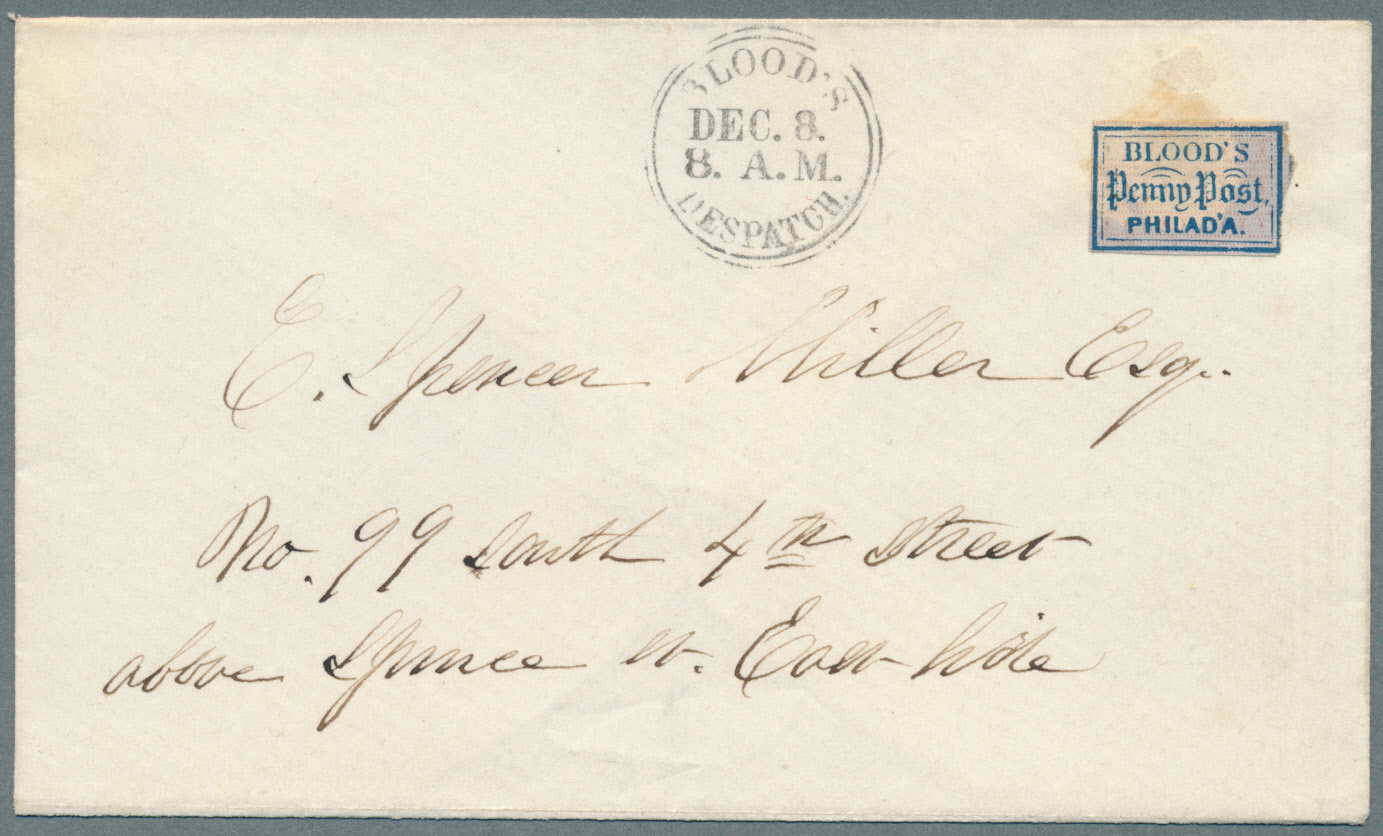 BLOOD'S
DEC. 8.
8. A.M.
DESPATCH.
BLOOD'S
Penny Post,
PHILAD'A.
E. Spencer Miller Esq.
No. 99 South 4th Street
above Spruce st. East side